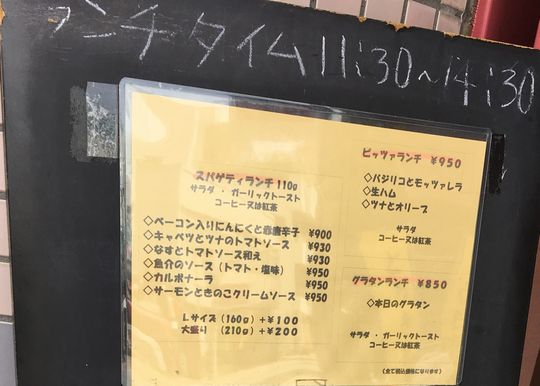 ランチタイム 11:30~14:30
スパゲティランチ 110g
サラダ ・ ガーリックトースト
コーヒー又は紅茶
◇ベーコン入りにんにくと赤唐辛子 ¥900
◇キャベツとツナのトマトソース ¥930
◇なすとトマトソース和え ¥930
◇魚介のソース(トマト・塩味) ¥950
◇カルボナーラ ¥950
◇サーモンときのこクリームソース ¥950
Lサイズ(160g)+¥100
大盛り (210g)+¥200
ピッツァランチ ¥950
◇バジリコとモッツァレラ
◇生ハム
◇ツナとオリーブ
サラダ
コーヒー又は紅茶
グラタンランチ ¥850
◇本日のグラタン
サラダ ・ ガーリックトースト
コーヒー又は紅茶
(全て税込価格になります)